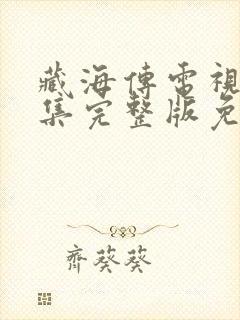 藏海傳電視
集完整版免
齊葵葵